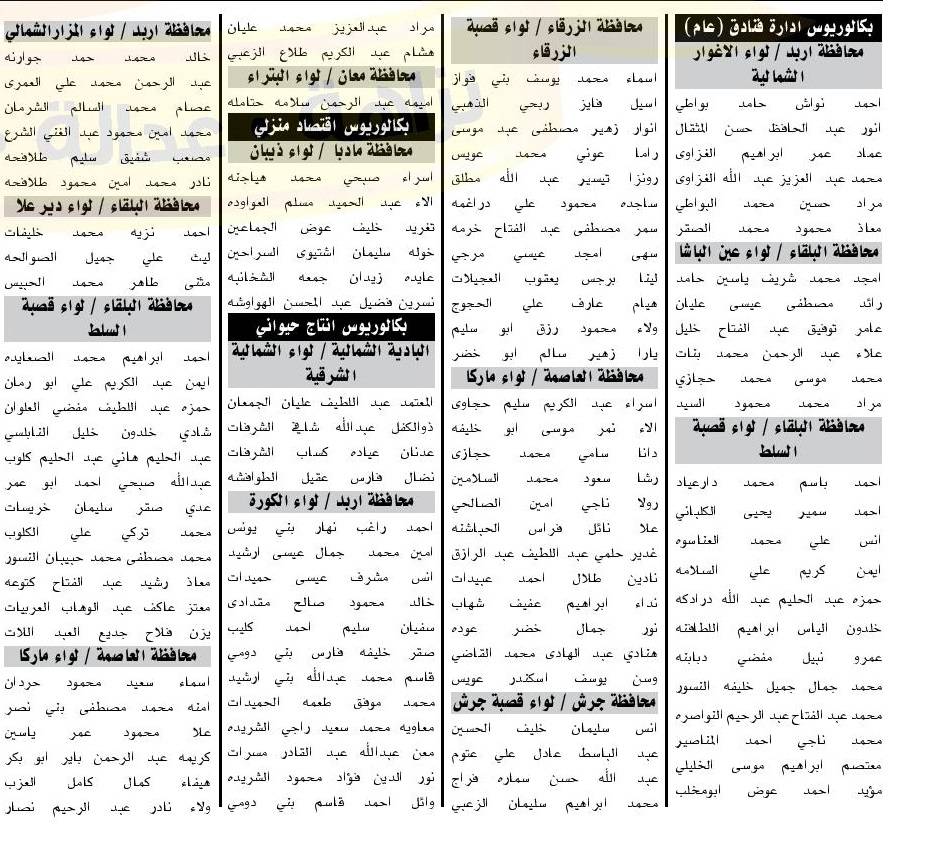 بكالوريوس ادارة فنادق (عام)
محافظة اربد / لواء الاغوار
الشمالية
احمد نواش حامد بواطي
انور عبد الحافظ حسن المثقال
عماد عمر ابراهيم الغزاوى
محمد عبد العزيز عبد الله الغزاوى
مراد حسين محمد البواطي
معاذ محمود محمد الصقر
محافظة البلقاء / لواء عين الباشا
امجد محمد شريف ياسين حامد
رائد مصطفى عيسى عليان
عامر توفيق عبد الفتاح خليل
علاء عبد الرحمن محمد بنات
محمد موسى محمد حجازي
مراد محمد محمود السيد
محافظة البلقاء / لواء قصبة
السلط
احمد باسم محمد دارعياد
احمد سمير يحيى الكلباني
انس علي محمد العناسوه
ايمن كريم علي السلامه
حمزه عبد الحليم عبد الله درادكه
خلدون الياس ابراهيم اللطافته
عمرو نبيل مفضي دبابنه
محمد جمال جميل خليفه النسور
محمد عبد الفتاح عبد الرحيم النواصره
محمد ناجي احمد المناصير
معتصم ابراهيم موسى الخليلي
مؤيد احمد عوض ابومخلب
محافظة الزرقاء / لواء قصبة
الزرقاء
اسماء محمد يوسف بني فواز
اسيل فايز ربحي الذهبي
انوار زهير مصطفى عبد موسى
راما عوني محمد عويس
رونزا تيسير عبد الله مطلق
ساجده محمود علي دراغمه
سمر مصطفى عبد الفتاح خرمه
سهى امجد عيسي مرجي
لينا برجس يعقوب العجيلات
هيام عارف علي الحجوج
ولاء محمود رزق ابو سليم
يارا زهير سالم ابو خضر
محافظة العاصمة / لواء ماركا
اسراء عبد الكريم سليم حجاوى
الاء نمر موسى ابو خليفه
دانا سامي محمد حجازى
رشا سعود محمد السلامين
رولا ناجي امين الصالحي
علا نائل فراس الحباشنه
غدير حلمي عبد اللطيف عبد الرازق
نادين طلال احمد عبيدات
نداء ابراهيم عفيف شهاب
نور جمال خضر عوده
هنادي عبد الهادى محمد القاضي
وسن يوسف اسكندر عويس
محافظة جرش / لواء قصبة جرش
انس سليمان خليف الحسين
عبد الباسط عادل علي عتوم
عبد الله حسن سماره فراج
محمد ابراهيم سليمان الزعبي
مراد عبدالعزيز محمد عليان
هشام عبد الكريم طلاع الزعبي
محافظة معان / لواء البتراء
اميمه عبد الرحمن سلامه حتامله
بكالوريوس اقتصاد منزلي
محافظة مادبا / لواء ذيبان
اسراء صبحي محمد هياجنه
الاء عبد الحميد مسلم العواوده
تغريد خليف عوض الجماعين
خوله سليمان اشتيوى السراحين
عايده زيدان جمعه الشخانبه
نسرين فضيل عبد المحسن الهواوشه
بكالوريوس انتاج حيواني
البادية الشمالية / لواء الشمالية
الشرقية
المعتمد عبد اللطيف عليان الجمعان
ذوالكفل عبدالله شافي الشرفات
عدنان عياده كساب الشرفات
نضال فارس عقيل الطوافشه
محافظة اربد / لواء الكورة
احمد راغب نهار بني يونس
امين محمد جمال عيسى ارشيد
انس مشرف عيسى حميدات
خالد محمود صالح مقدادى
سفيان سليم احمد كليب
صقر خليفه فارس بني دومي
قاسم محمد عبدالله بني ارشيد
محمد موفق طعمه الحميدات
معاويه محمد سعيد راجي الشريده
معن عبدالله عبد القادر مسرات
نور الدين فؤاد محمود الشريده
وائل احمد قاسم بني دومي
محافظة اربد / لواء المزارالشمالي
خالد محمد حمد جوارنه
عبد الرحمن محمد علي العمرى
عصام محمد السالم الشرمان
محمد امين محمود عبد الغني الشرع
مصعب شفيق سليم طلافحه
نادر محمد امين محمود طلافحه
محافظة البلقاء / لواء دير علا
احمد نزيه محمد خليفات
ليث علي جميل الصوالحه
مثنى طاهر محمد الحبيس
محافظة البلقاء / لواء قصبة
السلط
احمد ابراهيم محمد الصعايده
ايمن عبد الكريم علي ابو رمان
حمزه عبد اللطيف مفضي العلوان
شادي خلدون خليل النابلسي
عبد الحليم هاني عبد الحليم كلوب
عبدالله صبحي احمد ابو عمر
عدي صقر سليمان خريسات
محمد تركي علي الكلوب
محمد مصطفى محمد حبيبان النسور
معاذ رشيد عبد الفتاح كتوعه
معتز عاكف عبد الوهاب العربيات
يزن فلاح جديع العبد اللات
محافظة العاصمة / لواء ماركا
اسماء سعيد محمود حردان
امنه محمد مصطفى بني نصر
علا محمود عمر ياسين
كريمه عبد الرحمن باير ابو بكر
هيفاء كمال كامل العزب
ولاء نادر عبد الرحيم نصار